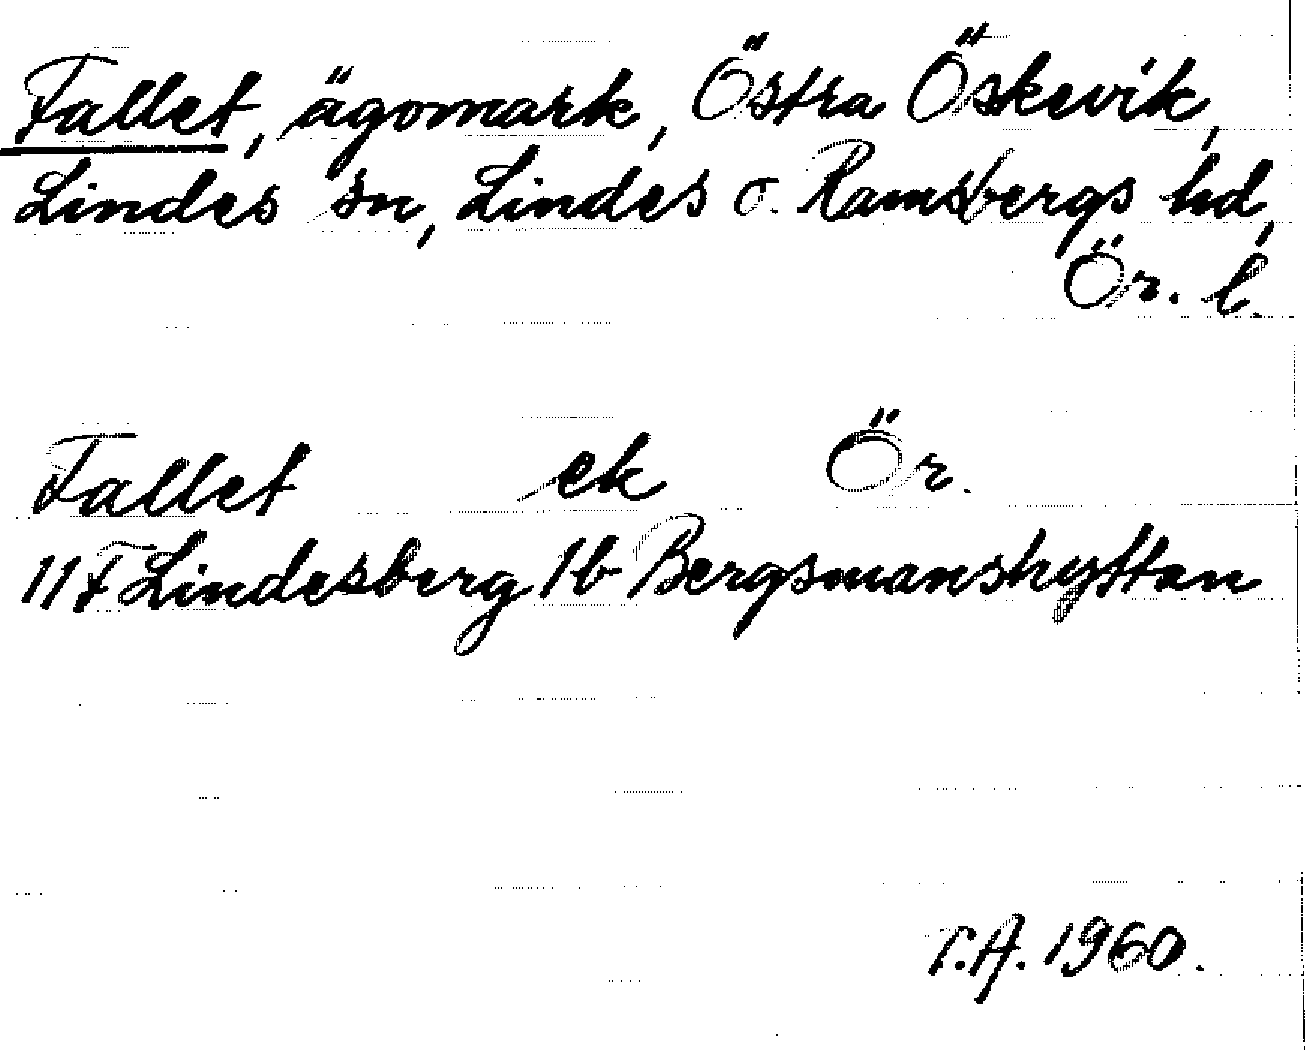 Fallet, ägomark, Östra Öskevik,
Lindes sn, Lindes o. Ramsbergs hd,
Ör. l.
Fallet ek Ör.
11F Lindesberg 1b Bergsmanshyttan
T.A. 1960.